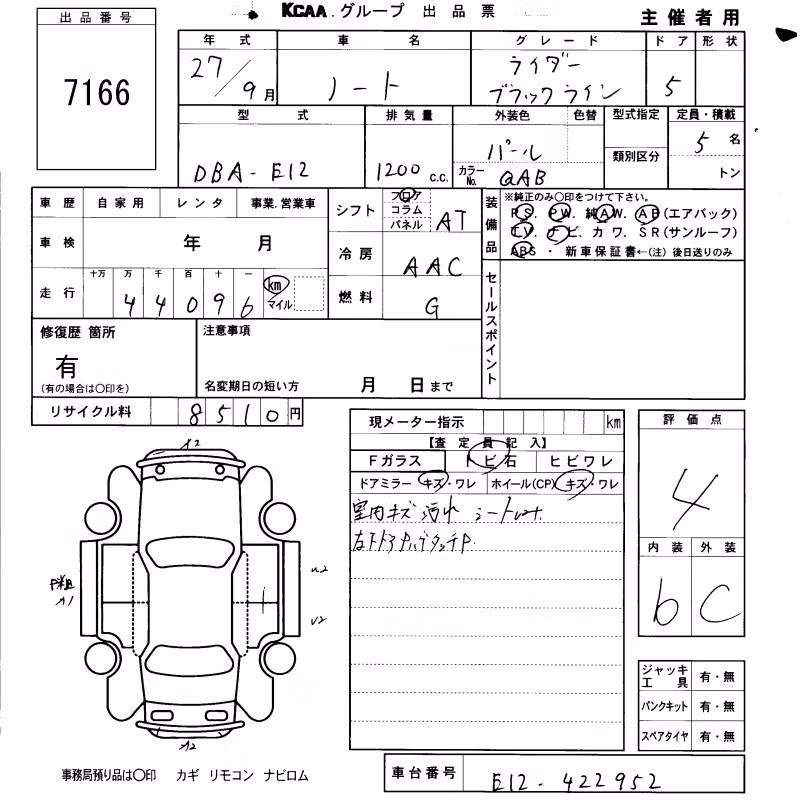 KCAA.グループ 出品票
主催者用
出品番号
7166
年式 車名 グレード ドア 形状
27/9月 ノート ライダー
ブラックライン 5
型式 排気量 外装色 色替 型式指定 定員・積載
DBA-E12 1200c.c. パール 5名
類別区分
カラーNo. QAB トン
車歴 自家用 レンタ 事業.営業車
車検 年 月
走行 十万 万 千 百 十 一
44096 km マイル
シフト フロア コラム パネル AT
冷房 AAC
燃料 G
装備品 ※純正のみ○印をつけて下さい。
P S. P W. 純 A W. A B(エアバック)
T V. ナ ビ. カ ワ. S R(サンルーフ)
A B S ・ 新車保証書←(注) 後日送りのみ
セールスポイント
修復歴 箇所
有
(有の場合は○印を)
注意事項
名変期日の短い方 月 日まで
リサイクル料 8510円
現メーター指示 km
【査定員記入】
Fガラス トビ石 ヒビワレ
ドアミラー キズ・ワレ ホイール(CP) キズ・ワレ
室内キズ 汚れ
評価点
4
内装 外装
b C
A2
A1
U2
A2
ジャッキ工具 有・無
パンクキット 有・無
スペアタイヤ 有・無
事務局預り品は○印 カギ リモコン ナビロム
車台番号 E12-422952